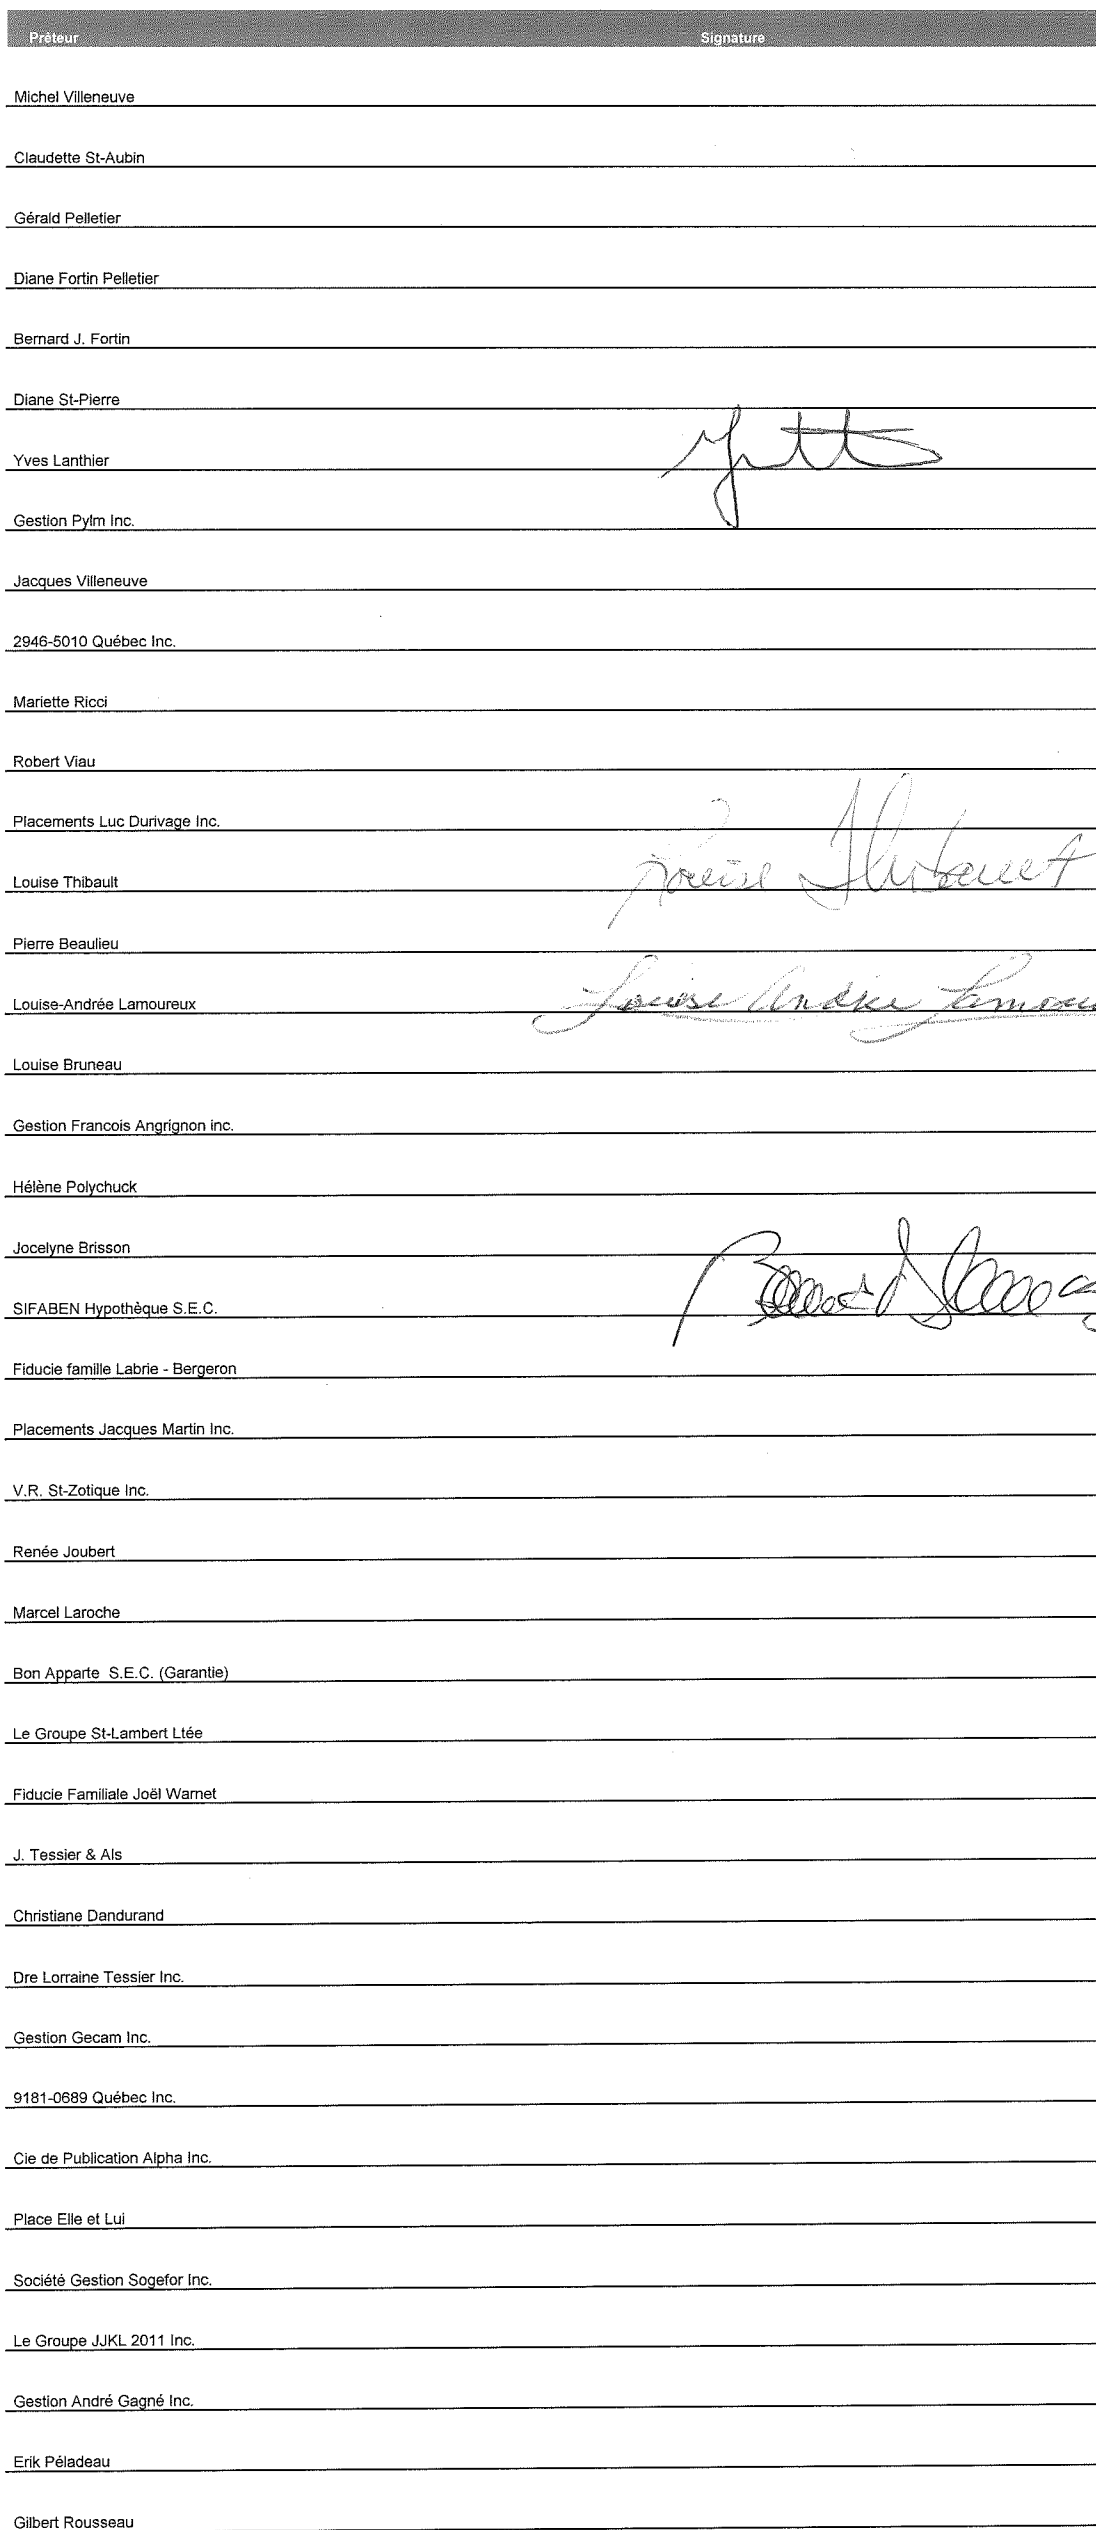 Prêteur Signature
Michel Villeneuve
Claudette St-Aubin
Gérald Pelletier
Diane Fortin Pelletier
Bernard J. Fortin
Diane St-Pierre
Yves Lanthier
Gestion Pylm Inc.
Jacques Villeneuve
2946-5010 Québec Inc.
Mariette Ricci
Robert Viau
Placements Luc Durivage Inc.
Louise Thibault Louise Thibault
Pierre Beaulieu
Louise-Andrée Lamoureux Louise Andrée Lamou
Louise Bruneau
Gestion Francois Angrignon inc.
Hélène Polychuck
Jocelyne Brisson
SIFABEN Hypothèque S.E.C.
Fiducie famille Labrie - Bergeron
Placements Jacques Martin Inc.
V.R. St-Zotique Inc.
Renée Joubert
Marcel Laroche
Bon Apparte S.E.C. (Garantie)
Le Groupe St-Lambert Ltée
Fiducie Familiale Joël Warnet
J. Tessier & Als
Christiane Dandurand
Dre Lorraine Tessier Inc.
Gestion Gecam Inc.
9181-0689 Québec Inc.
Cie de Publication Alpha Inc.
Place Elle et Lui
Société Gestion Sogefor Inc.
Le Groupe JJKL 2011 Inc.
Gestion André Gagné Inc.
Erik Péladeau
Gilbert Rousseau